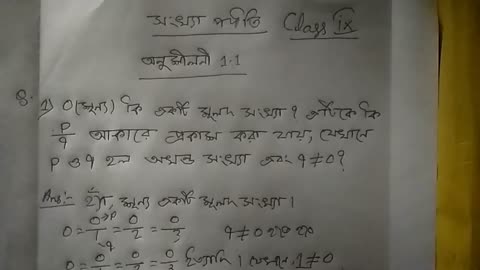 সংখ্যা পদ্ধতি Class ix
অনুশীলনী 1.1
1) 0(শূন্য) কি একটি মূলদ সংখ্যা ? এটিকে কি
p/q আকারে প্রকাশ করা যায়, যেখানে
p ও q হল অখণ্ড সংখ্যা এবং q ≠ 0?
Ans:- হ্যাঁ, শূন্য একটি মূলদ সংখ্যা।
0 = 0/1 →p = 0/2 = 0/3 q ≠ 0 হতে হবে
↘q
0 = 0/1 = 0/2 = 0/3 ইত্যাদি। যেখানে, 1 ≠ 0